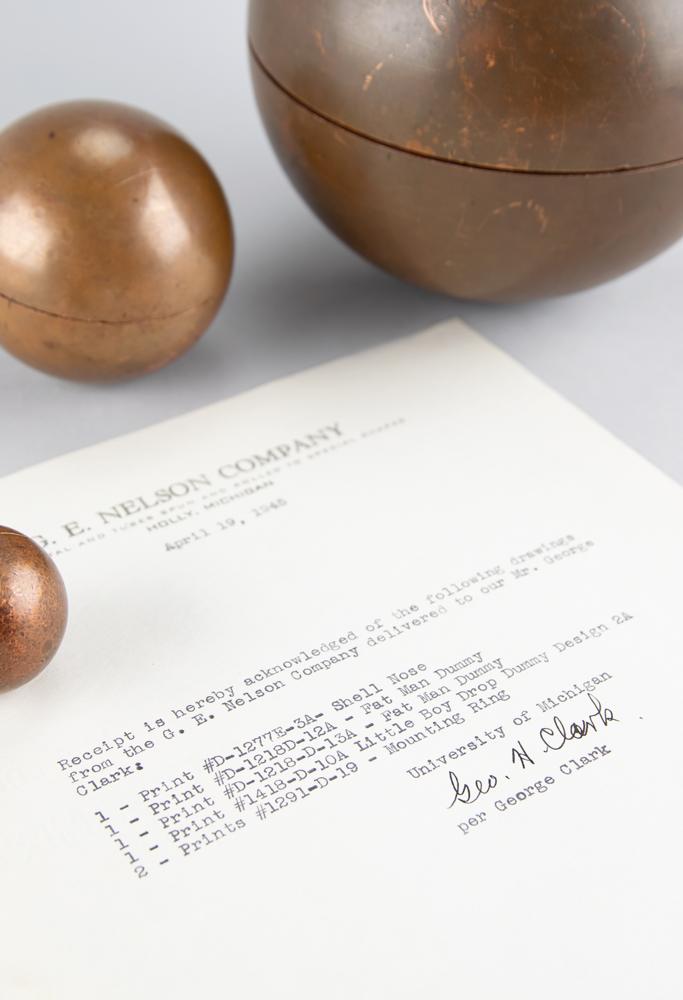 G. E. NELSON COMPANY
AND TUBES SPUN AND ROLLED TO SPECIAL SHAPES
HOLLY, MICHIGAN
April 19, 1945
Receipt is hereby acknowledged of the following drawings
from the G. E. Nelson Company delivered to our Mr. George
Clark:
1 - Print #D-1277E-3A- Shell Nose
1 - Print #D-1218D-12A - Fat Man Dummy
1 - Print #D-1218-D-13A - Fat Man Dummy
1 - Print #1418-D-10A Little Boy Drop Dummy Design 2A
2 - Prints #1291-D-19 - Mounting Ring
University of Michigan
Geo. H. Clark
per George Clark